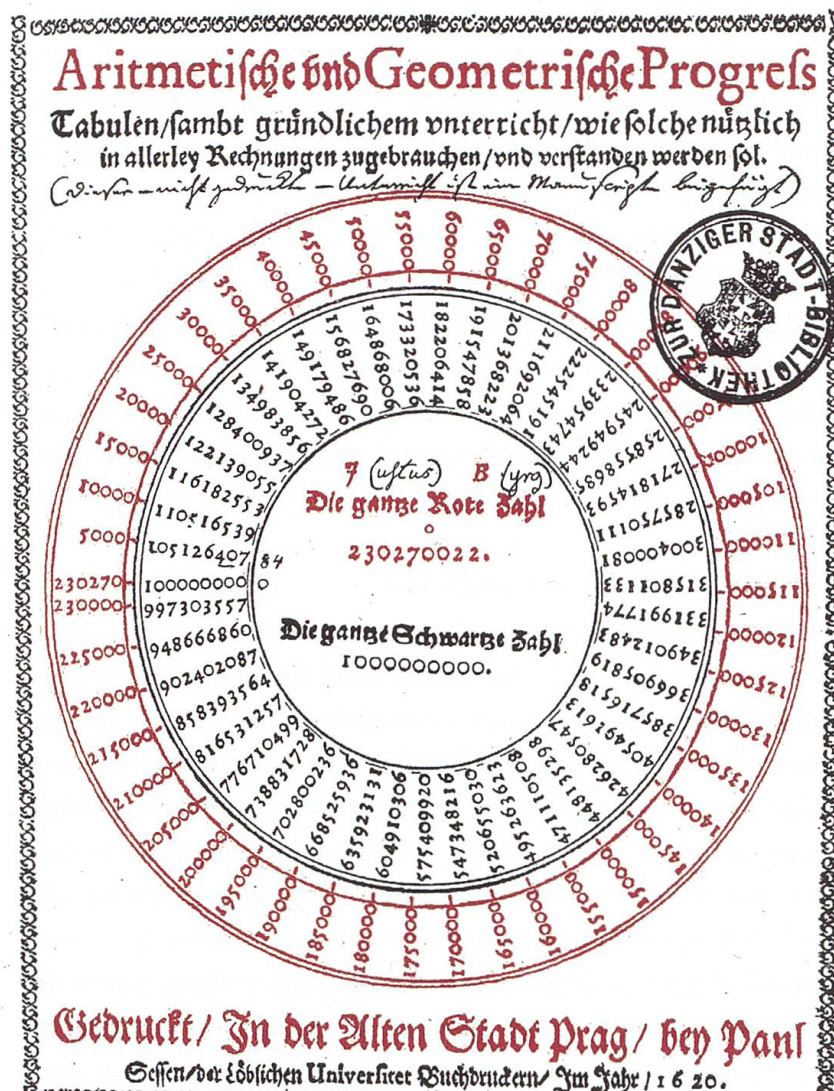 Aritmetiſche vnd Geometriſche Progreſs
Tabulen/ſambt gründlichem vnterricht/wie ſolche nützlich
in allerley Rechnungen zugebrauchen/vnd verstanden werden ſol.
(dieser – nicht gedruckte – Unterricht ist ein Manuscripte beigefügt)
ZUR DANZIGER STADT-BIBLIOTHEK
5000
10000
15000
20000
25000
30000
35000
40000
45000
50000
55000
60000
65000
70000
75000
80000
100000
105000
110000
115000
120000
125000
130000
135000
140000
145000
150000
155000
160000
165000
170000
175000
180000
185000
190000
195000
200000
205000
210000
215000
220000
225000
230000
230270
100000000 0
105126407 84
110516539
116182553
122139055
128400937
134983856
141904272
149179486
156827690
164868006
173320536
182206414
191547858
201368223
211692064
222545191
233954743
245949244
258558685
271814593
285750111
300400081
315801133
331991774
349012483
366905819
385716518
405491613
426280547
448135298
471110508
495263623
520655030
547348216
575409920
604910306
635923131
668525936
702800236
738831728
776710499
816531257
858393564
902402087
948666860
997303557
J (ustus) B (yrg)
Die gantze Rote Zahl
o
230270022.
Die gantze Schwartze Zahl
1000000000.
Gedruckt/ In der Alten Stadt Prag/ bey Paul
Seſſen/der Löblichen Universitet Buchdruckern/ Im Jahr/ 1620.